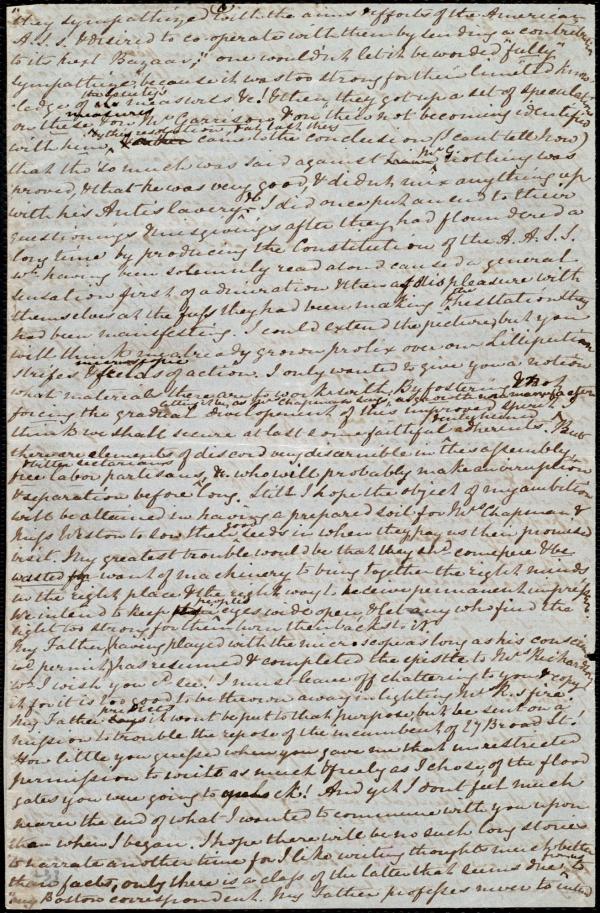 "they sympathized with the aims & efforts of the American
A.S.S. & desired to co-operate with them by sending a contribution
to its next Bazaar," one wouldn't let it be worded "fully
sympathize" because it was too strong for their limited know-
ledge of the Society's measures &c! & then they got up a set of speculation
on these measures, & on Mr Garrison, & on their not becoming identified
with him, by this resolution, & at last they came to the conclusion (I can't tell how)
that tho' so much was said against Mr G. nothing was
proved, & that he was very good, & didn't mix anything up
with his Antislavery &c. I did once put an end to their
questionings & misgivings after they had floundered a
long time by producing the Constitution of the A.A.S.S.
wh. having been solemnly read aloud caused a general
sensation first of admiration & then of displeasure with
themselves at the fuss they had been making & hesitation they
had been manifesting. I could extend the picture, but you
will think me already grown prolix over our Lilliputian
strifes & microscopic fields of action. I only wanted to give you a notion
what materials there are to work with. By fostering & not
forcing the gradual development of this improving spirit, I
think we shall secure at last some faithful adherents. But
there are elements of discord very discernible in the assembly,
free labor partisans, bitter sectarians &c. who will probably make an irruption
& separation before long. Still I hope the object of my ambition
will be attained in having a prepared soil for Mrs Chapman &
Miss Weston to sow their good seeds in when they pay us their promised
visit. My greatest trouble would be that they shd. come here & be
wasted for want of machinery to bring together the right minds
in the right place & the right way to receive permanent impression.
We intend to keep people's eyes wide open, & let any who find the
light too strong for them turn their backs to it.
My Father, having played with the microscope as long as his conscience
wd. permit, has resumed & completed the epistle to Mrs Richardson,
wh. I wish you cd. see. I must leave off chattering to you & copy
it for it is too good to be thrown away in lighting Mrs R.'s fire
My Father it won't be put to that purpose, but be sent on a
mission to trouble the repose of the incumbent of 27 Broad St.
How little you guessed when you gave me that unrestricted
permission to write as much & freely as I chose of the flood
gates you were going to unlock! And yet I don't feel much
nearer the end of what I wanted to commune with you upon
than when I began. I hope there will be no such long stories
to narrate another time for I like writing thoughts much better
than facts, only there is a class of the latter that seems due from me to
my Boston correspondent. My Father professes never to intend